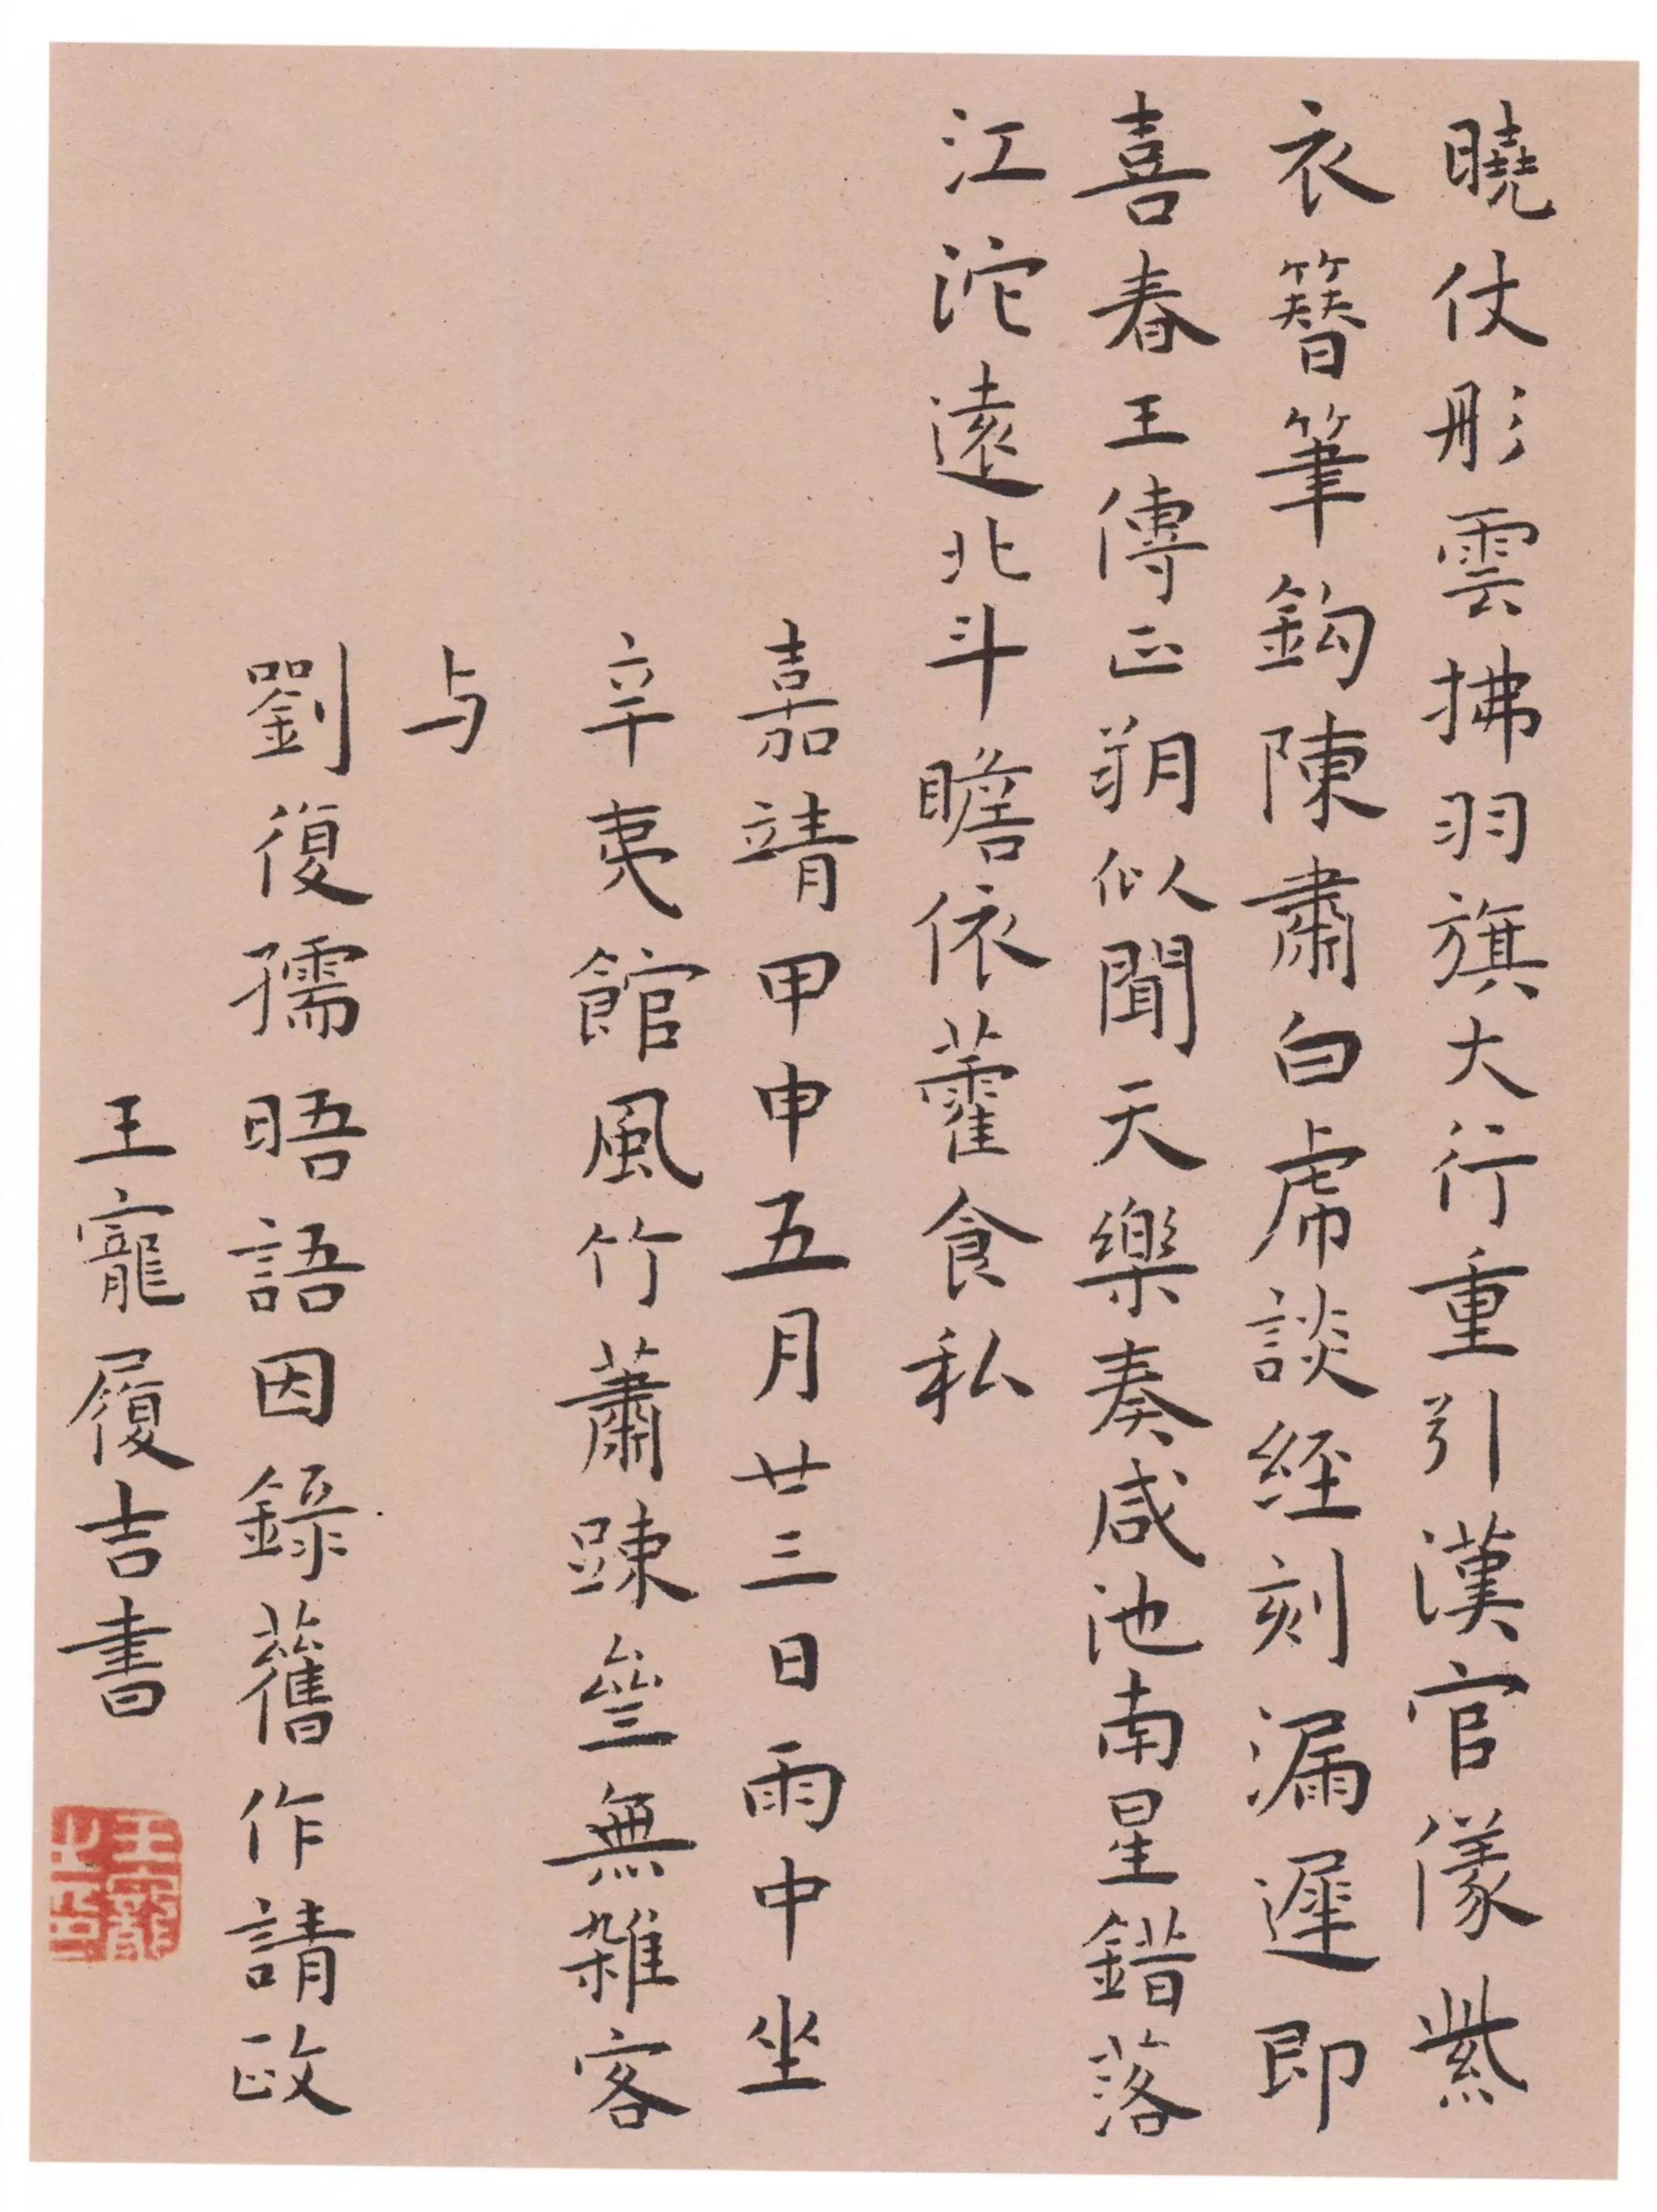 曉仗彤雲拂羽旗大行重引漢官儀紫
衣簪筆鈎陳肅白虎談經刻漏遲即
喜春王傳正朔似聞天樂奏咸池南星錯落
江沱遠北斗瞻依藿食私
嘉靖甲申五月廿三日雨中坐
辛夷館風竹蕭踈無雜客
与
劉復孺晤語因錄舊作請政
王寵履吉書
王寵